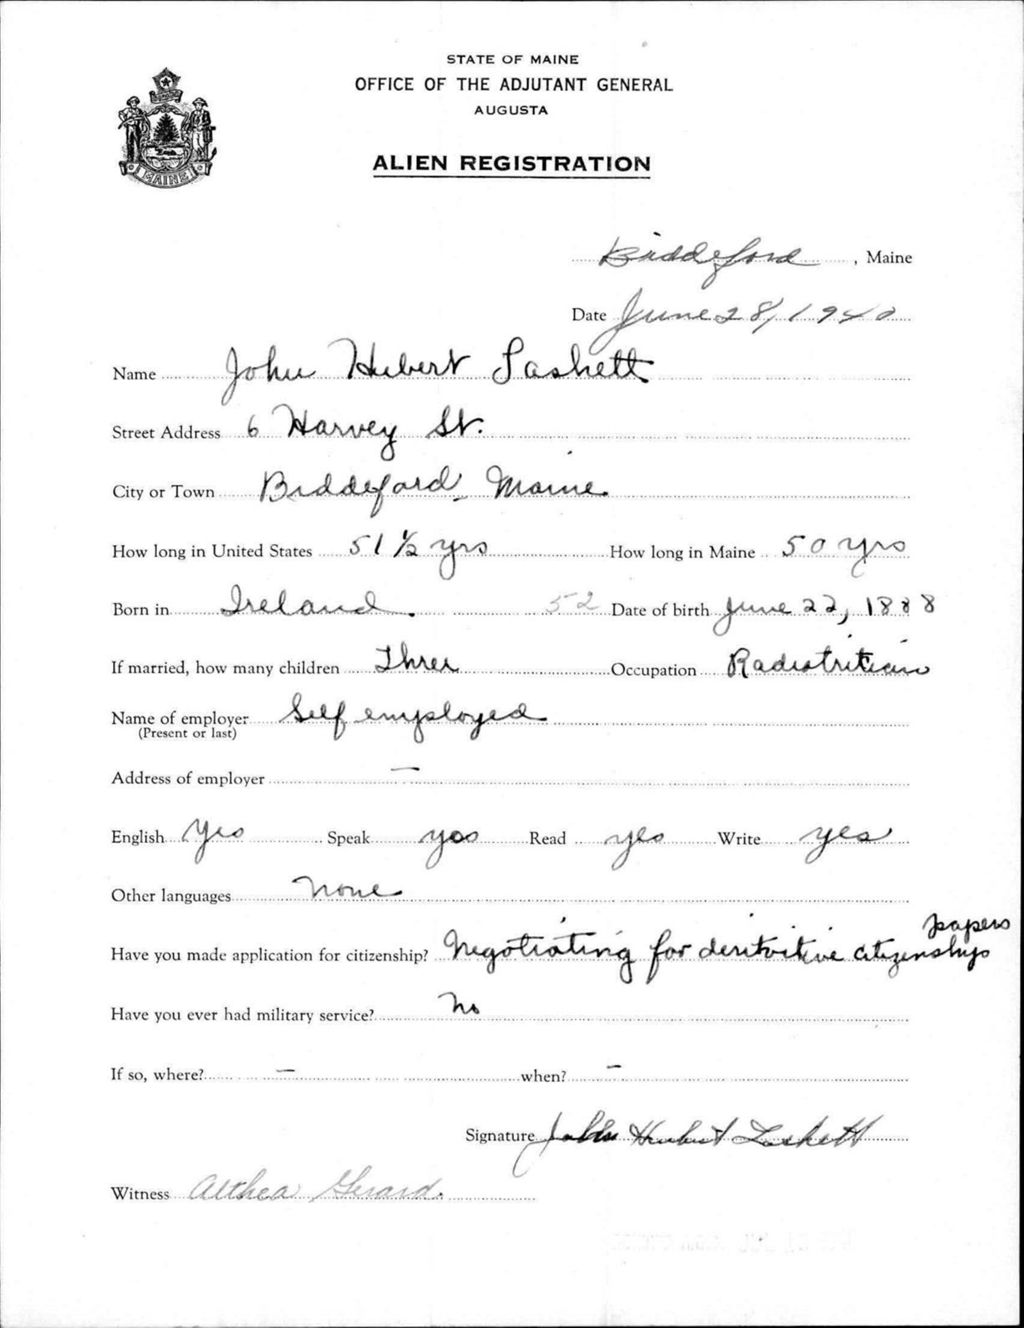 STATE OF MAINE
OFFICE OF THE ADJUTANT GENERAL
AUGUSTA
MAINE
ALIEN REGISTRATION
Biddeford, Maine
Date June 28, 1940
Name John Hubert Laskett
Street Address 6 Harvey St.
City or Town Biddeford, Maine.
How long in United States 51 ½ yrs How long in Maine 50 yrs
Born in Ireland. 52 Date of birth June 22, 1888
If married, how many children Three Occupation Radiotritician
Name of employer Self employed
(Present or last)
Address of employer —
English Yes Speak yes Read yes Write yes
Other languages none
papers
Have you made application for citizenship? Negotiating for citizenship
Have you ever had military service? No
If so, where? — when? —
Signature John Hubert Laskett
Witness Althea Gerard.